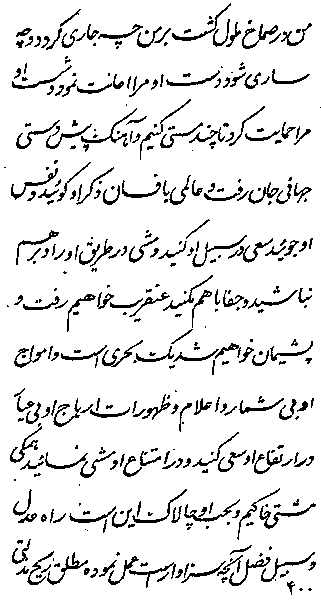 من در صماخ ملول گشت بر من چه جاری گردد و چه
ساری شود دست او مرا اعانت نمود و شست او
مرا حمایت کرد تا چند مستی کنیم و آهنگ پیش دستی
جهانی جان رفت و عالمی با فسان ذکر او گوئید و نفس
او جوئید سعی در سبیل او کنید و مشی در طریق او را و بر هم
نباشید و جفا با هم نکنید عنقریب خواهیم رفت و
پشیمان خواهیم شد یک بحری است و امواج
او بی شمار و اعلام و ظهورات اریاح او بی عیا
در ارتفاع او سعی کنید و در امتناع او مشی نمائید همگی
مشتی خاکیم و بحب او چالاک این است راه عدل
و سبیل فضل آنچه سزاوار است عمل نموده مطلق ریح
۴۰۰